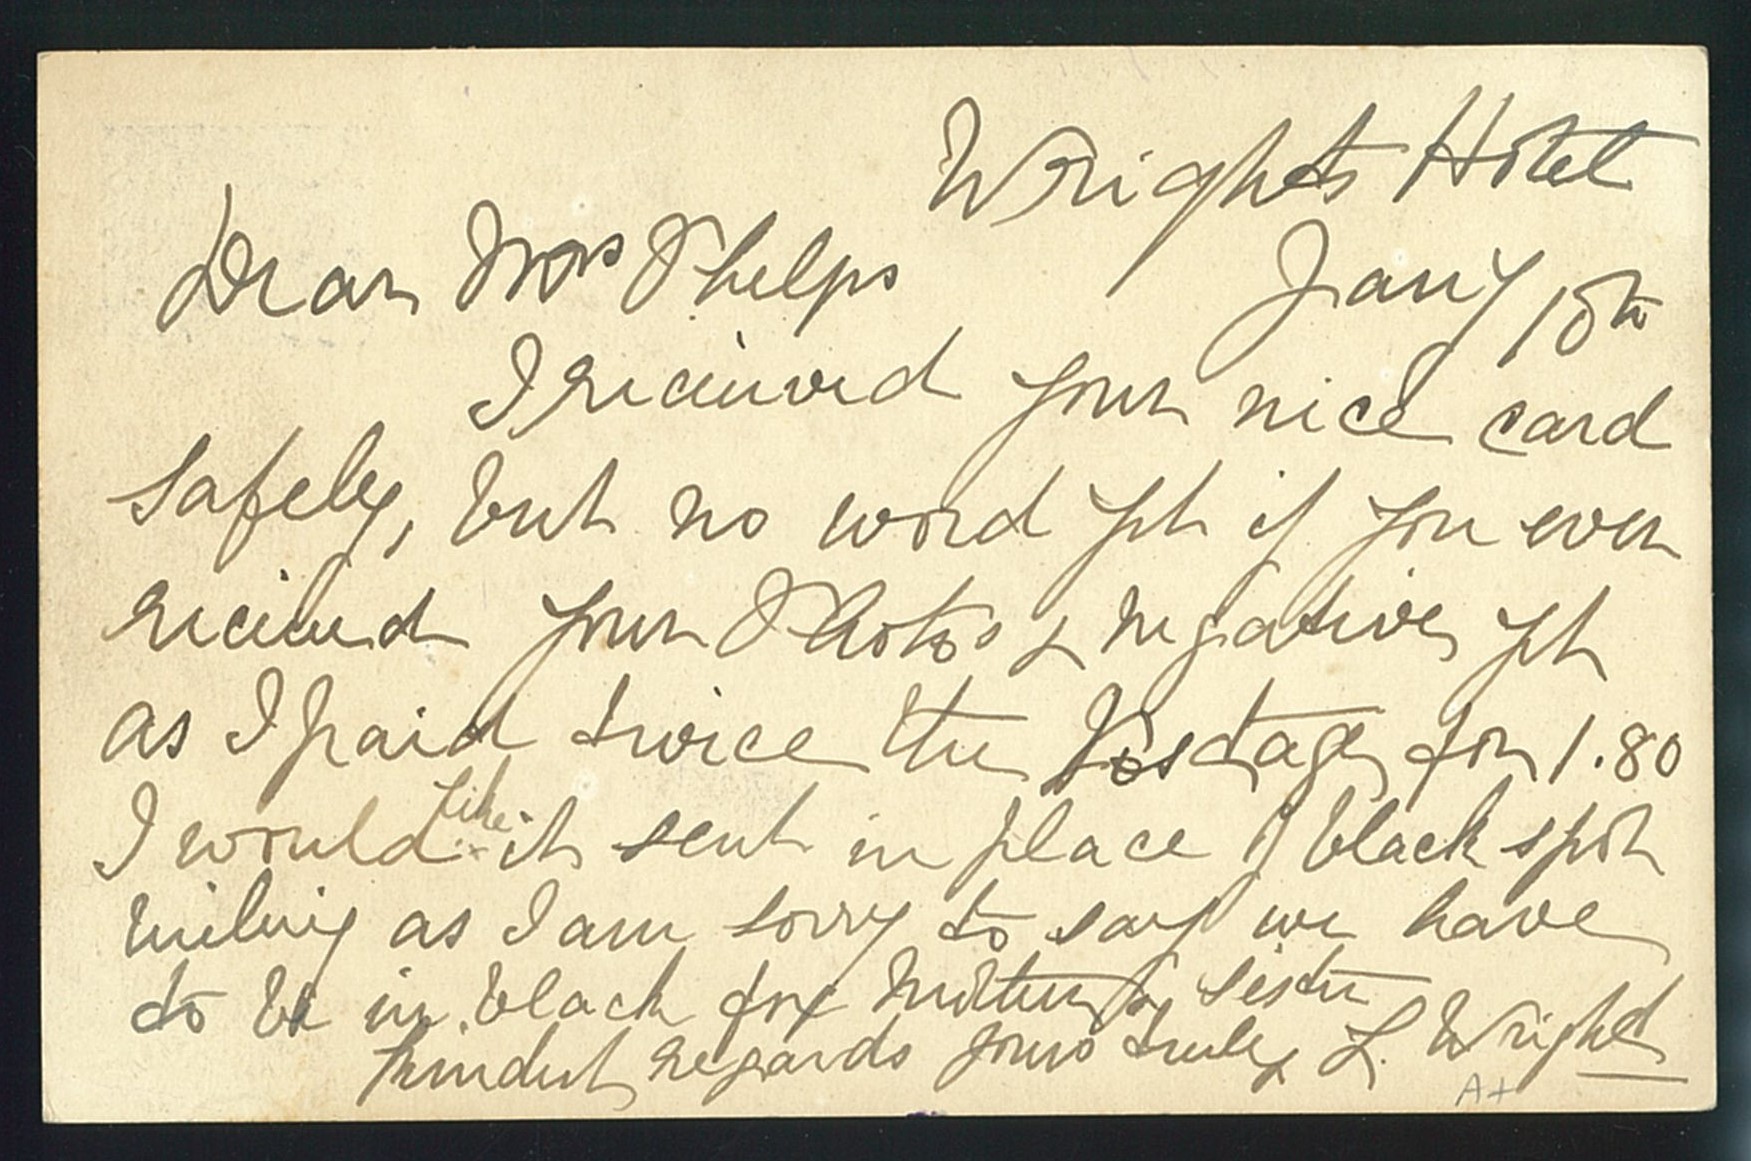 Wrights Hotel
Dear Mrs Phelps Jany 10th
I received your nice card
safely, but no word yet if you ever
received your Photos & negatives yet
as I paid twice the Postage for 1.80
I would like it sent in place of black spot
as I am sorry to say we have
to be in black for Mother & sister
Kindest regards yours truly L. Wright
A+